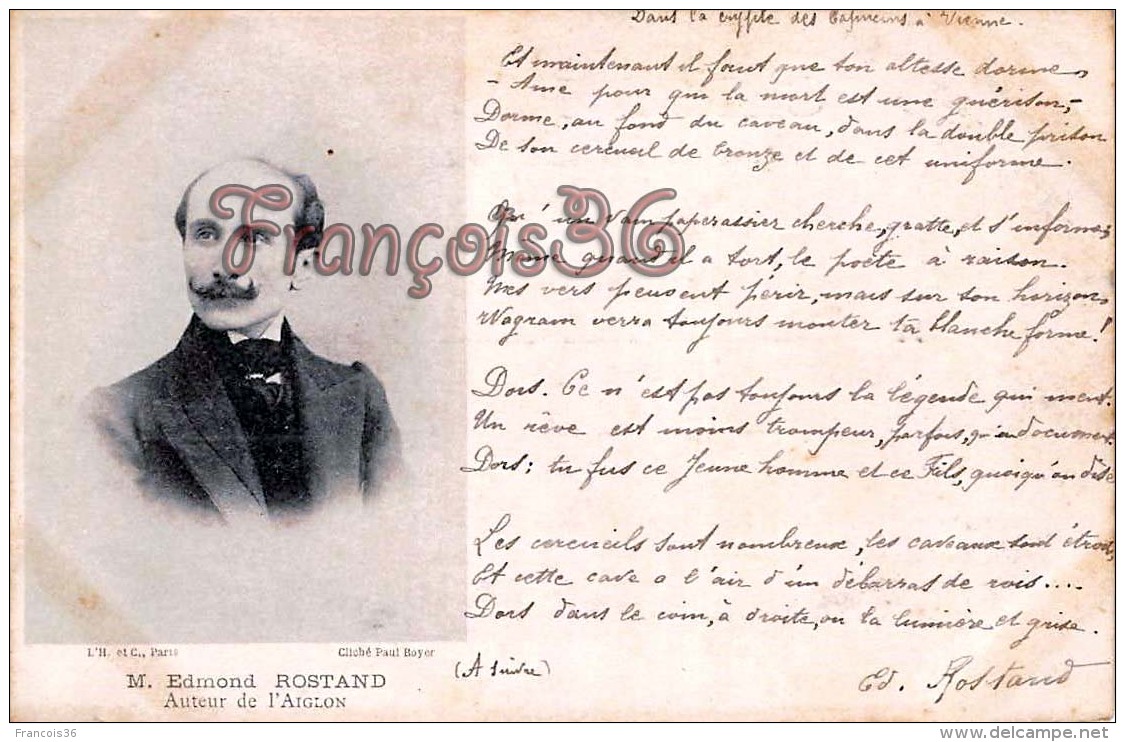 Dans la cripte des Capucins à Vienne.
Et maintenant il faut que ton altesse dorme,
- Ame pour qui la mort est une guérison, -
Dorme, au fond du caveau, dans la double prison
De son cercueil de bronze et de cet uniforme.
Qu'un vain paperassier cherche, gratte, et s'informe;
Même quand il a tort, le poète à raison.
Mes vers peuvent périr, mais sur ton horizon,
Wagram verra toujours monter ta blanche forme!
Dors. Ce n'est pas toujours la légende qui ment.
Un rêve est moins trompeur, parfois, qu'un document.
Dors; tu fus ce Jeune homme et ce Fils, quoiqu'on dise
Les cercueils sont nombreux, les caveaux sont étroits,
Et cette cave a l'air d'un débarras de rois....
Dors dans le coin, à droite, ou la lumière et grise.
(A suivre)
Ed. Rostand
L'H. et C., Paris
Cliché Paul Boyer
M. Edmond ROSTAND
Auteur de l'AIGLON
François36
Francois36
www.delcampe.net